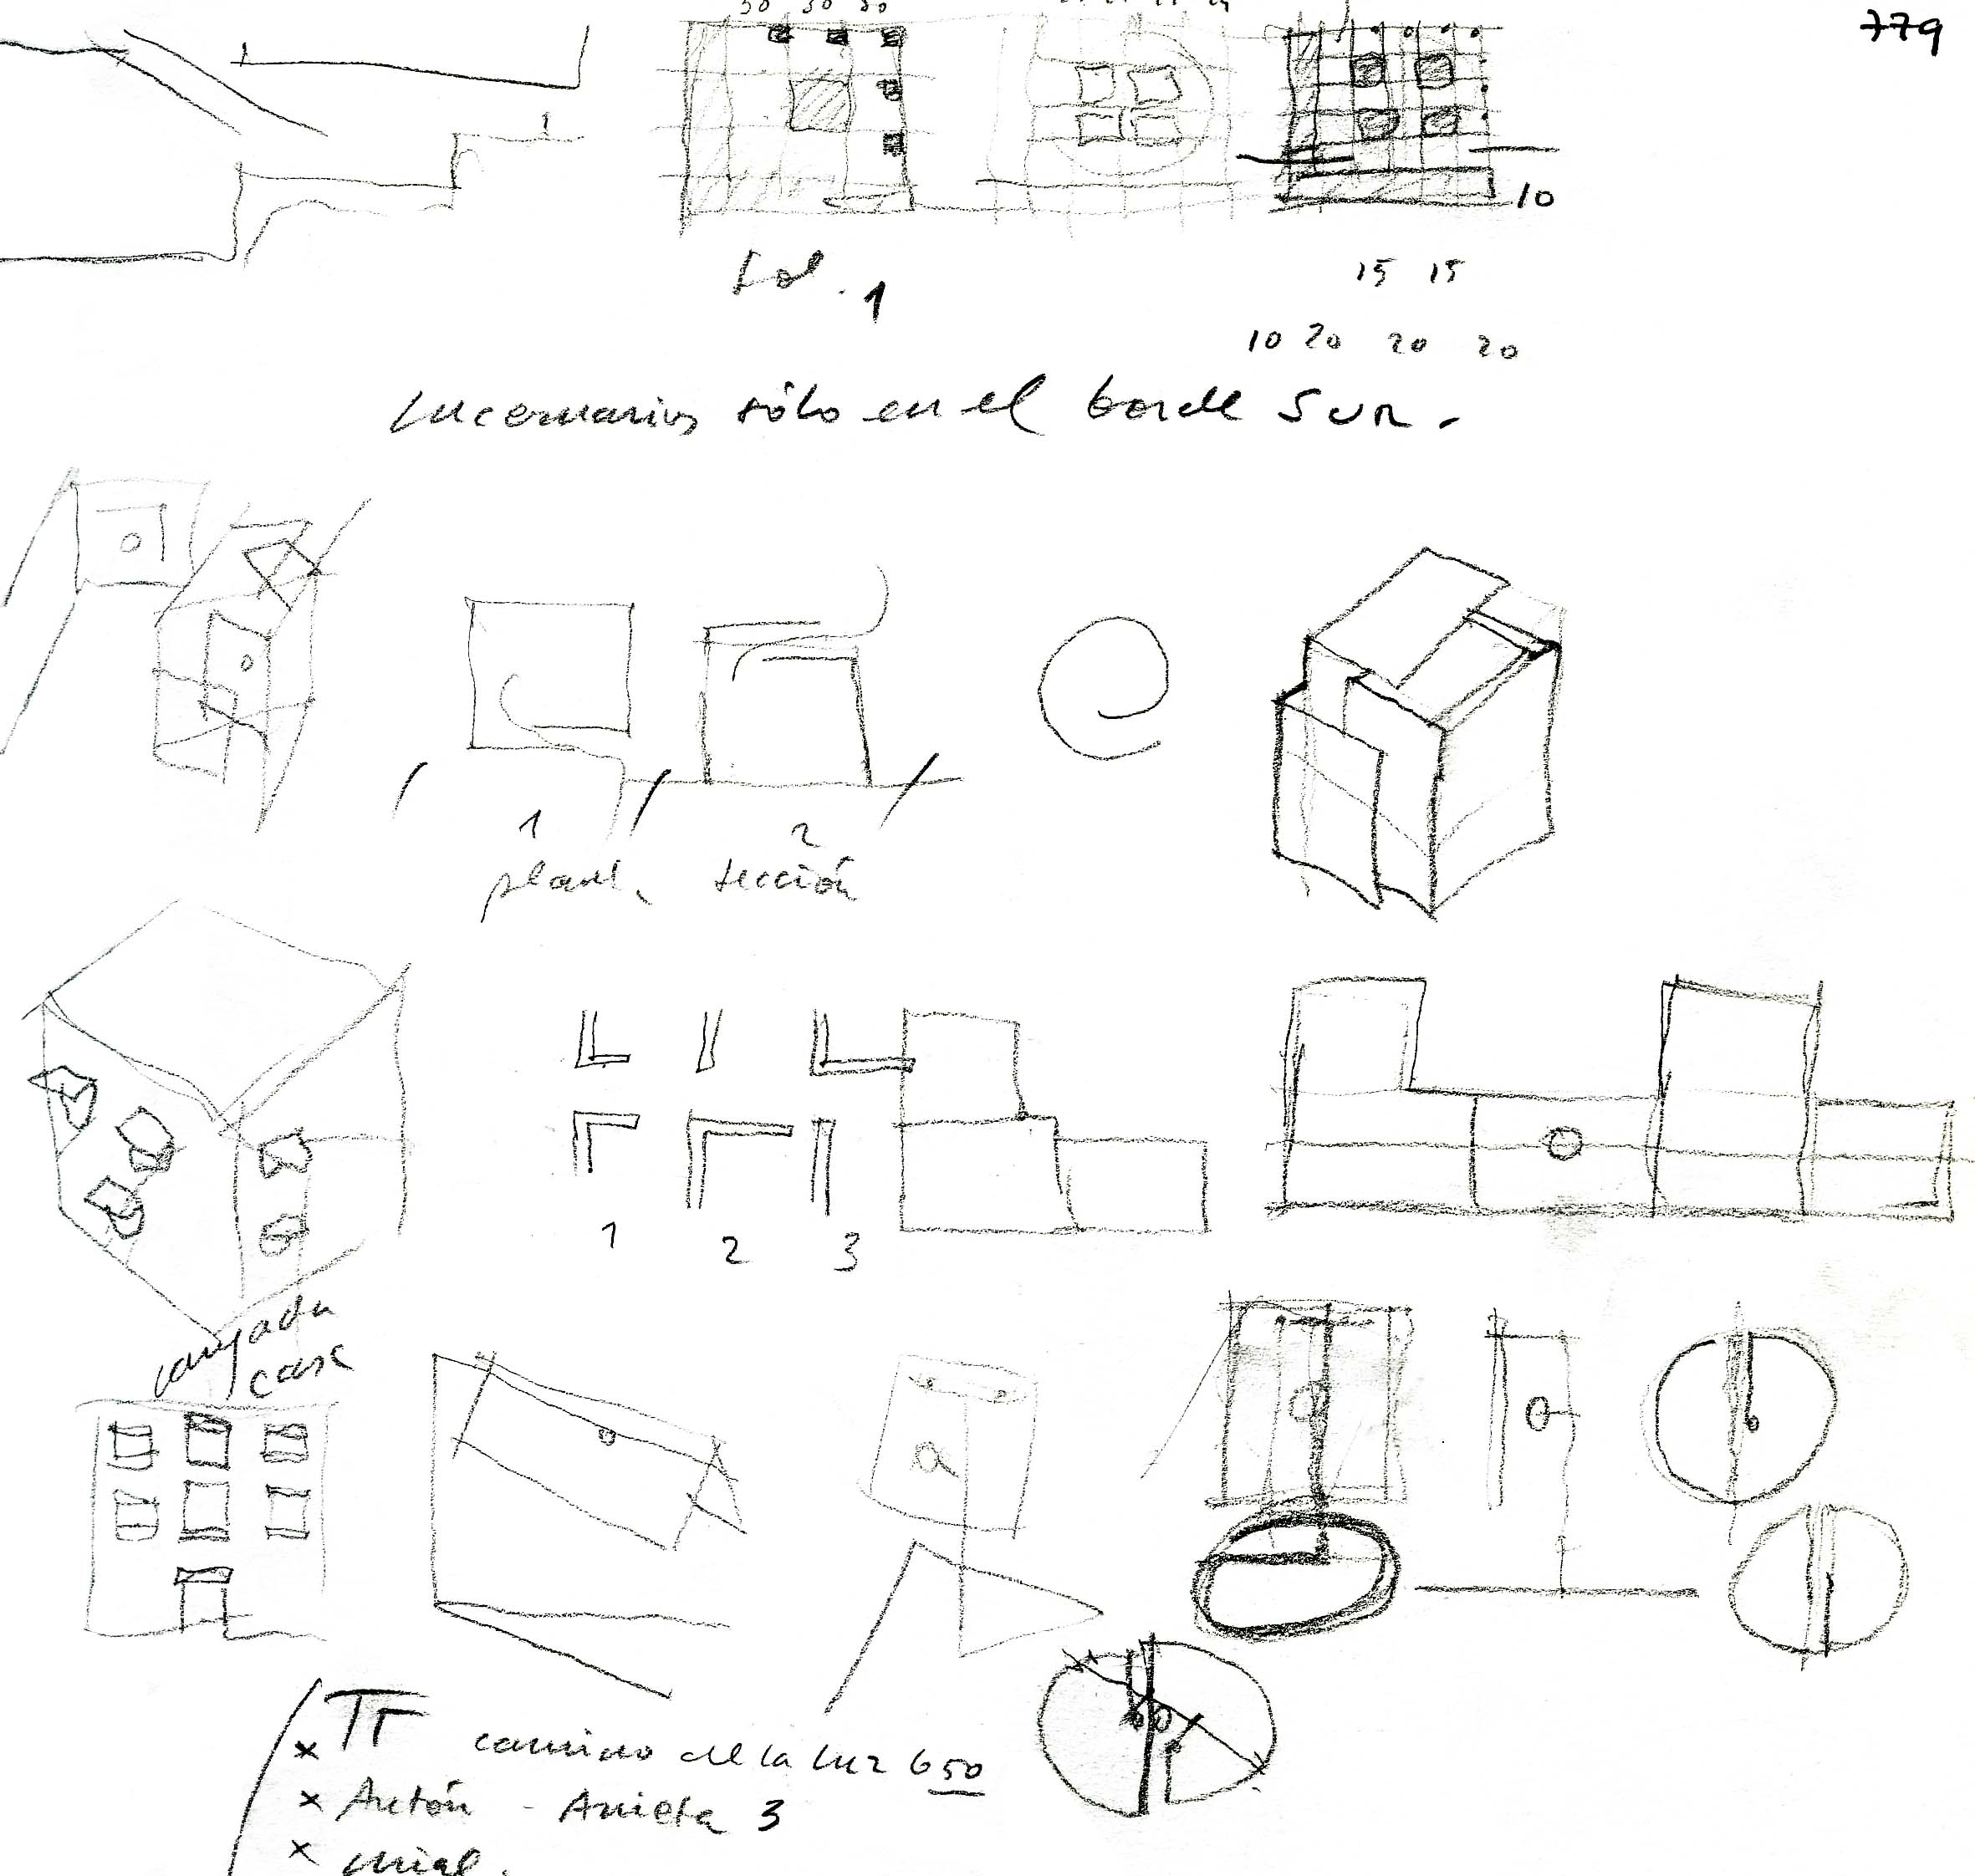 30 30 30
779
10
Sol. 1
15 15
10 20 20 20
Lucernarios sólo en el borde SUR.
1 2
planta sección
1 2 3
casa
camino de la luz 650
x Antón - Anieta 3
x